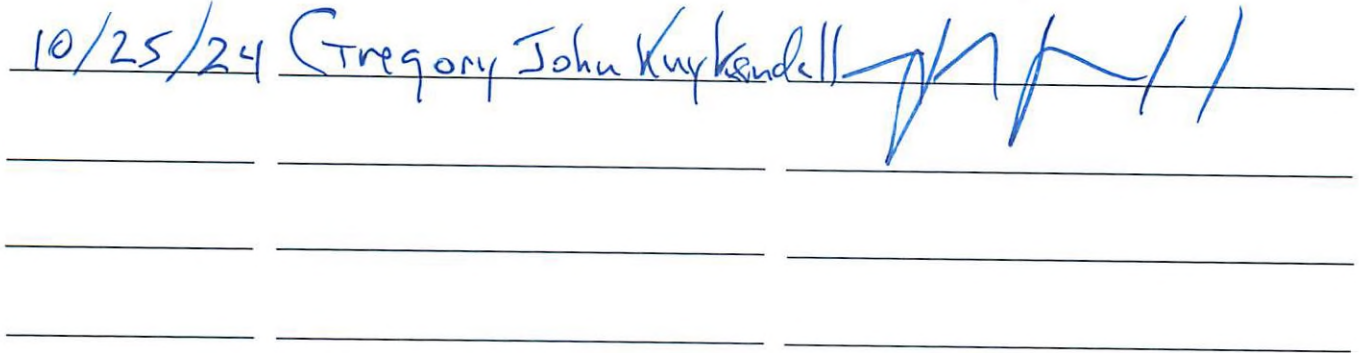 10/25/24 Gregory John Kuykendall